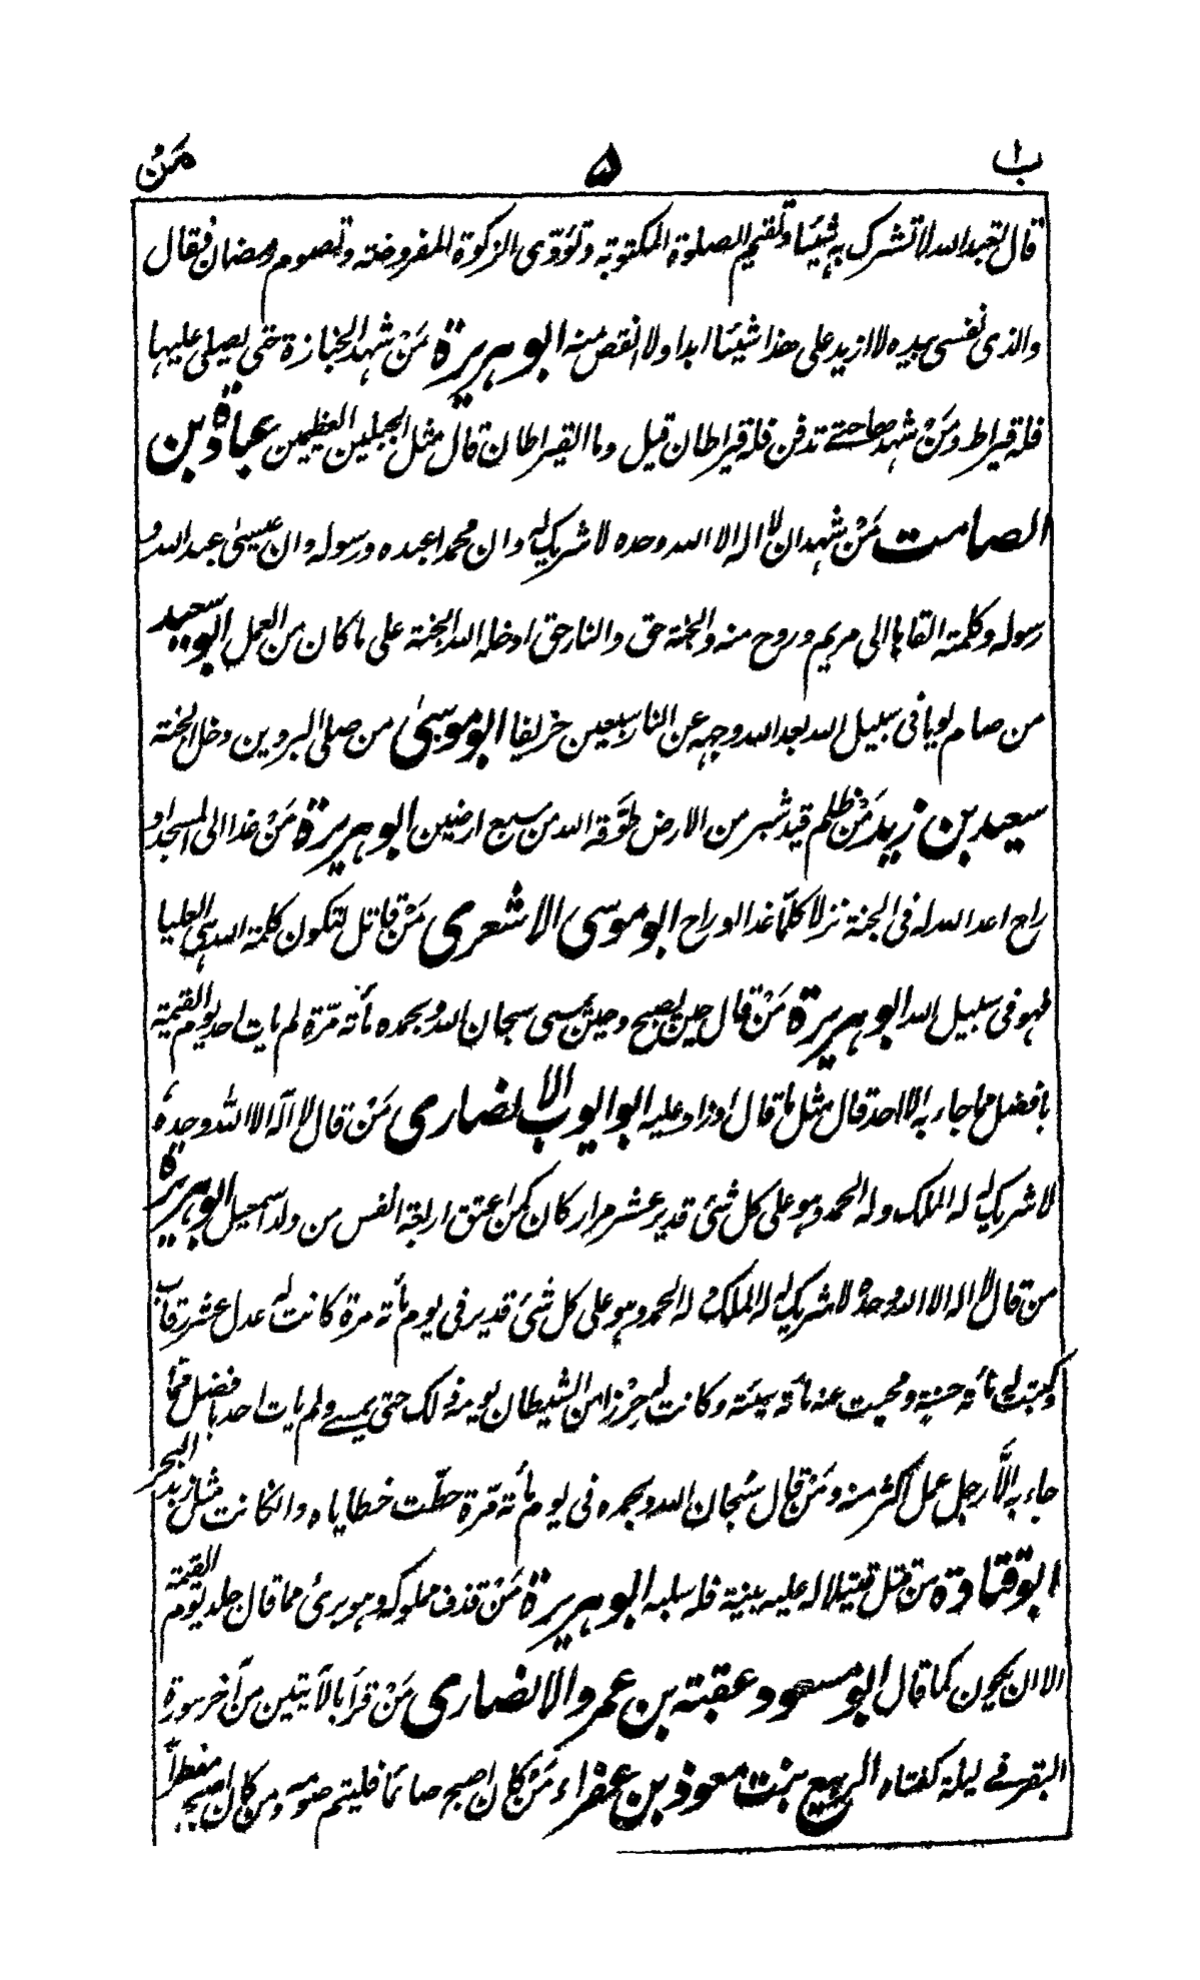 ب ١ ۵ مَنْ
قال تعبد الله لا تشرك به شيئا وتقيم الصلوة المكتوبة وتؤدى الزكوة المفروضة وتصوم رمضان فقال
والذى نفسى بيده لا ازيد على هذا شيئا ابدا ولا انقص منه ابو هريرة مَنْ شهد الجنازة حتى يصلى عليها
فله قيراط ومَنْ شهدها حتے تدفن فله قيراطان قيل وما القيراطان قال مثل الجبلين العظيمين عبادة بن
الصامت مَنْ شهد ان لا اله الا الله وحده لا شريك له وان محمدا عبده ورسوله وان عيسىٰ عبد الله و
رسوله وكلمته القاها الى مريم وروح منه والجنة حق والنار حق ادخله الله الجنة على ما كان من العمل ابو سعيد
من صام يوما فى سبيل الله بعد الله وجهه عن النار سبعين خريفا ابو موسىٰ من صلى البردين دخل الجنة
سعيد بن زيد مَنْ ظلم قيد شبر من الارض طوّقه الله من سبع ارضين ابو هريرة مَنْ غدا الى المسجد او
راح اعد الله له فى الجنة نزلا كلّما غدا او راح ابو موسى الاشعرى مَنْ قاتل لتكون كلمة الله هى العليا
فهو فى سبيل الله ابو هريرة مَنْ قال حين يصبح وحين يمسى سبحان الله وبحمده مأته مرّة لم يات احد يوم القيمة
بافضل مما جاء به الا احد قال مثل ما قال او زاد عليه ابو ايوب الانصارى مَنْ قال لا اله الا الله وحده
لا شريك له له الملك وله الحمد وهو على كل شئ قدير عشر مرار كان كمن اعتق اربعة انفس من ولد اسمعيل ابو هريرة
من قال لا اله الا الله وحده لا شريك له له الملك و له الحمد وهو على كل شئ قدير فى يوم مأته مرة كانت له عدل عشر رقاب
وكتبت له مأته حسنة ومحيت عنه مأته سيئة وكانت له حرزا من الشيطان يومه ذلك حتى يمسے ولم يات احد بافضل مما
جاء به الّا رجل عمل اكثر منه ومَنْ قال سُبحان الله وبحمده فى يوم مأته مرّة حطّت خطاياه وان كانت مثل زبد البحر
ابو قتادة من قتل قتيلا له عليه بينة فله سلبه ابو هريرة مَنْ قذف مملوكه وهو برئ مما قال جلد يوم القيمة
الا ان يكون كما قال ابو مسعود عقبة بن عمرو الانصارى مَنْ قرأ بالآيتين من آخر سورة
البقرة فے ليلة كفتاه الربيع بنت معوذ بن عفراء مَنْ كان اصبح صائما فليتم صومه ومن كان اصبح مفطرا